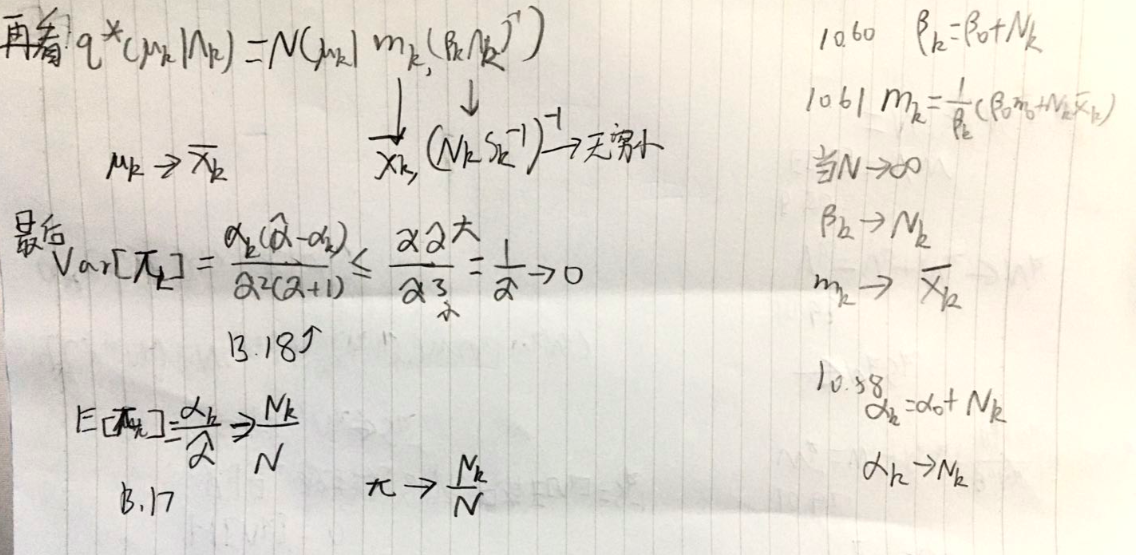 再看 q*(μk|Λk) = N(μk| mk, (βkΛk)⁻¹)
↓ ↓
μk → x̄k x̄k, (Nk Sk⁻¹)⁻¹ → 无穷小
最后
Var[πk] = αk(α̂-αk) / α̂²(α̂+1) ≤ α̂α̂大 / α̂³小 = 1/α̂ → 0
B.18↑
E[πk] = αk/α̂ ⇒ Nk/N
B.17 π → Nk/N
10.60 βk = β0 + Nk
10.61 mk = 1/βk (β0m0 + Nk x̄k)
当N→∞
βk → Nk
mk → x̄k
10.58
αk = α0 + Nk
αk → Nk